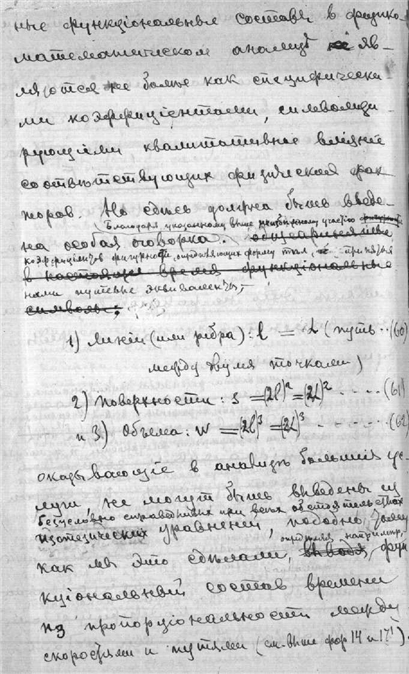 ные функціональные составы в физико-
математическом анализѣ яв-
ляются не болѣе как специфически-
ми коэффиціентами, символизи-
рующими квалитативное вліяніе
соотвѣтствующих физических фак
торов. Но здѣсь должна быть введе-
на особая оговорка.
Благодаря указанному выше участію
коэффиціентов определяющих форму тѣл,
в настоящее время функціональные
ными путевые эквиваленты,
символы:
1) Линіи (или ребра): l = L (путь .. (60)
между двумя точками)
2) Поверхности: s = (2l)² = (2L)² - - - - .. (61)
и 3) Объема: w = (2l)³ = (2L)³ - - - - - - - .. (62)
оказывающіе в анализѣ большія ус-
луги не могут быть выведены из
безусловно справедливых при всѣх обстоятельствах
уравненій, подобно тому
как мы это сдѣлали, опредѣляя, напримѣр, фун
кціональный состав времени
из пропорціональности между
скоростями и путями (см. выше фор 14 и 17).